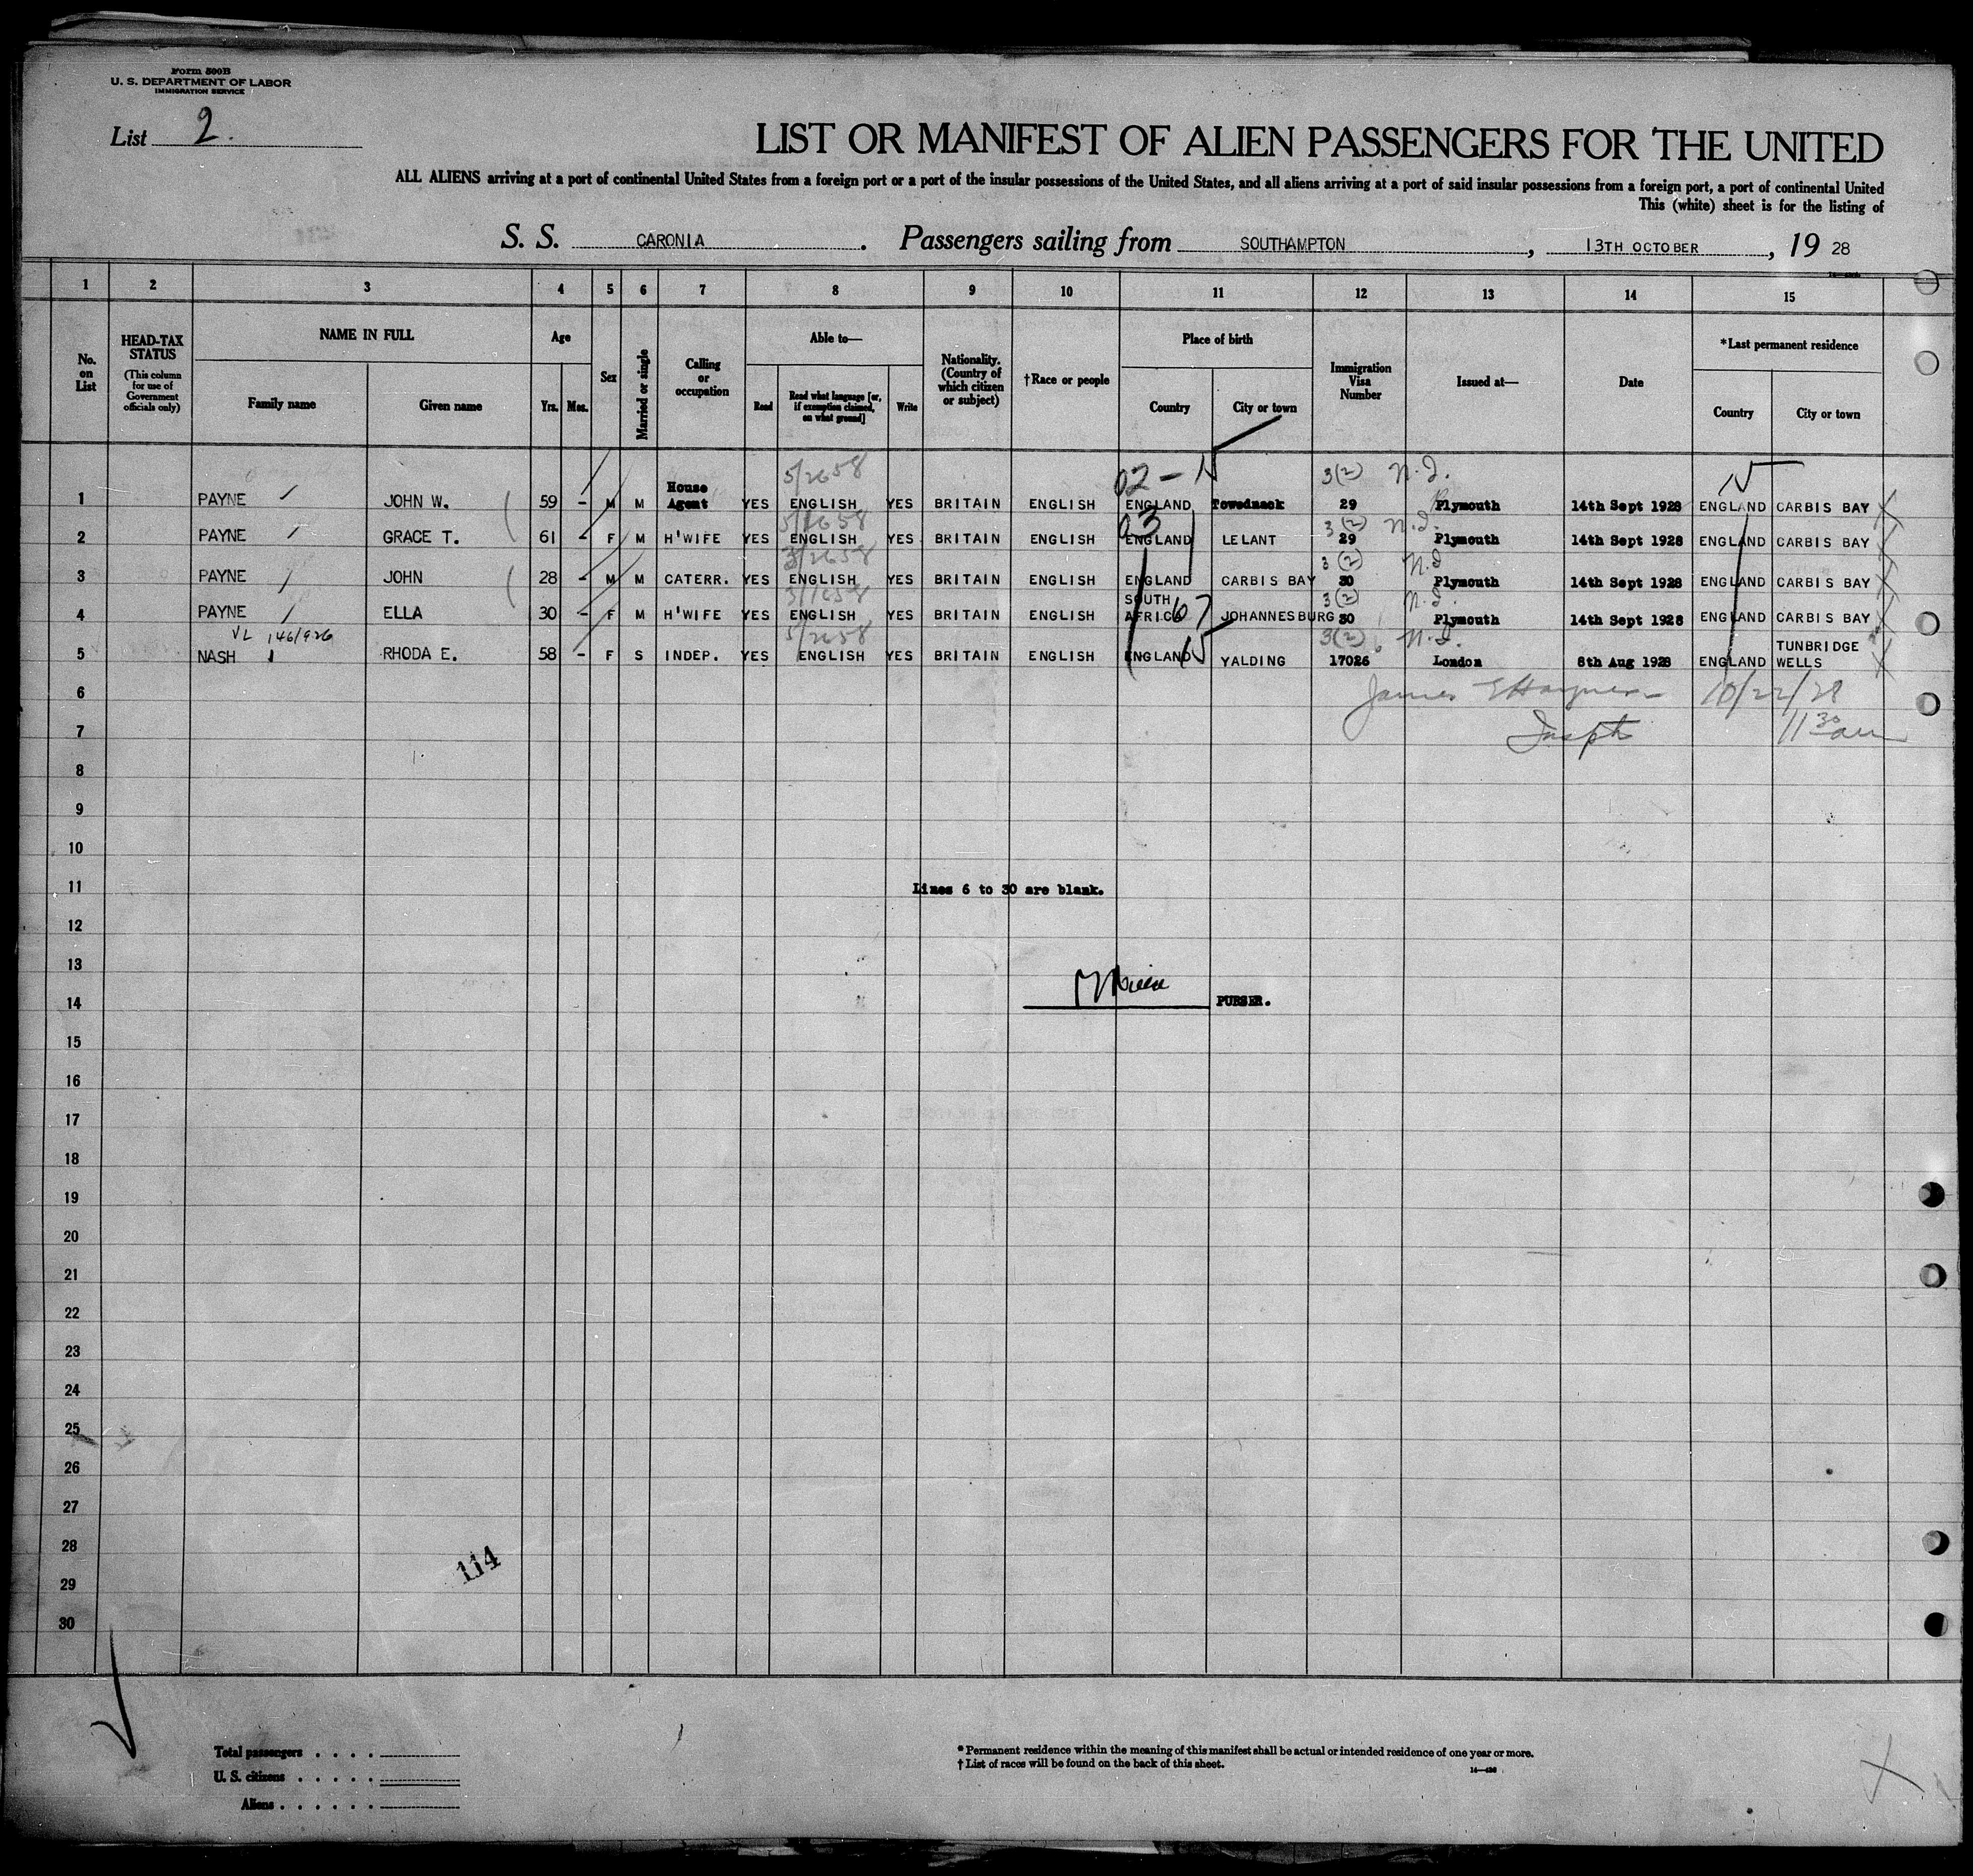 Form 500B
U. S. DEPARTMENT OF LABOR
IMMIGRATION SERVICE
List 2.
LIST OR MANIFEST OF ALIEN PASSENGERS FOR THE UNITED
ALL ALIENS arriving at a port of continental United States from a foreign port or a port of the insular possessions of the United States, and all aliens arriving at a port of said insular possessions from a foreign port, a port of continental United
This (white) sheet is for the listing of
S. S. CARONIA. Passengers sailing from SOUTHAMPTON, 13TH OCTOBER, 19 28
1 2 3 4 5 6 7 8 9 10 11 12 13 14 15
No. on List
HEAD-TAX STATUS (This column for use of Government officials only)
NAME IN FULL
Family name Given name
Age
Yrs. Mos.
Sex
Married or single
Calling or occupation
Able to—
Read Read what language [or, if exemption claimed, on what ground] Write
Nationality. (Country of which citizen or subject)
†Race or people
Place of birth
Country City or town
Immigration Visa Number
Issued at—
Date
*Last permanent residence
Country City or town
5/2658 02-15 3(2) N.I. 15
1 PAYNE JOHN W. 59 - M M House Agent YES ENGLISH YES BRITAIN ENGLISH ENGLAND Towednack 29 Plymouth 14th Sept 1928 ENGLAND CARBIS BAY
03 3(2) N.I.
2 PAYNE GRACE T. 61 - F M H'WIFE YES ENGLISH YES BRITAIN ENGLISH ENGLAND LELANT 29 Plymouth 14th Sept 1928 ENGLAND CARBIS BAY
3/2658 3(2) N.I
3 PAYNE JOHN 28 - M M CATERR. YES ENGLISH YES BRITAIN ENGLISH ENGLAND CARBIS BAY 30 Plymouth 14th Sept 1928 ENGLAND CARBIS BAY
3(2) N.I.
4 PAYNE ELLA 30 - F M H'WIFE YES ENGLISH YES BRITAIN ENGLISH SOUTH AFRICA 67 JOHANNESBURG 30 Plymouth 14th Sept 1928 ENGLAND CARBIS BAY
VL 146/926 5/2658 15 3(2) N.I.
5 NASH RHODA E. 58 - F S INDEP. YES ENGLISH YES BRITAIN ENGLISH ENGLAND YALDING 17026 London 8th Aug 1928 ENGLAND TUNBRIDGE WELLS
6 James 10/22/28
7 Inspt 11 30 am
8
9
10
11 Lines 6 to 30 are blank.
12
13
14 PURSER.
15
16
17
18
19
20
21
22
23
24
25
26
27
28
114
29
30
Total passengers . . . .
U. S. citizens . . . . .
Aliens . . . . . .
*Permanent residence within the meaning of this manifest shall be actual or intended residence of one year or more.
†List of races will be found on the back of this sheet.